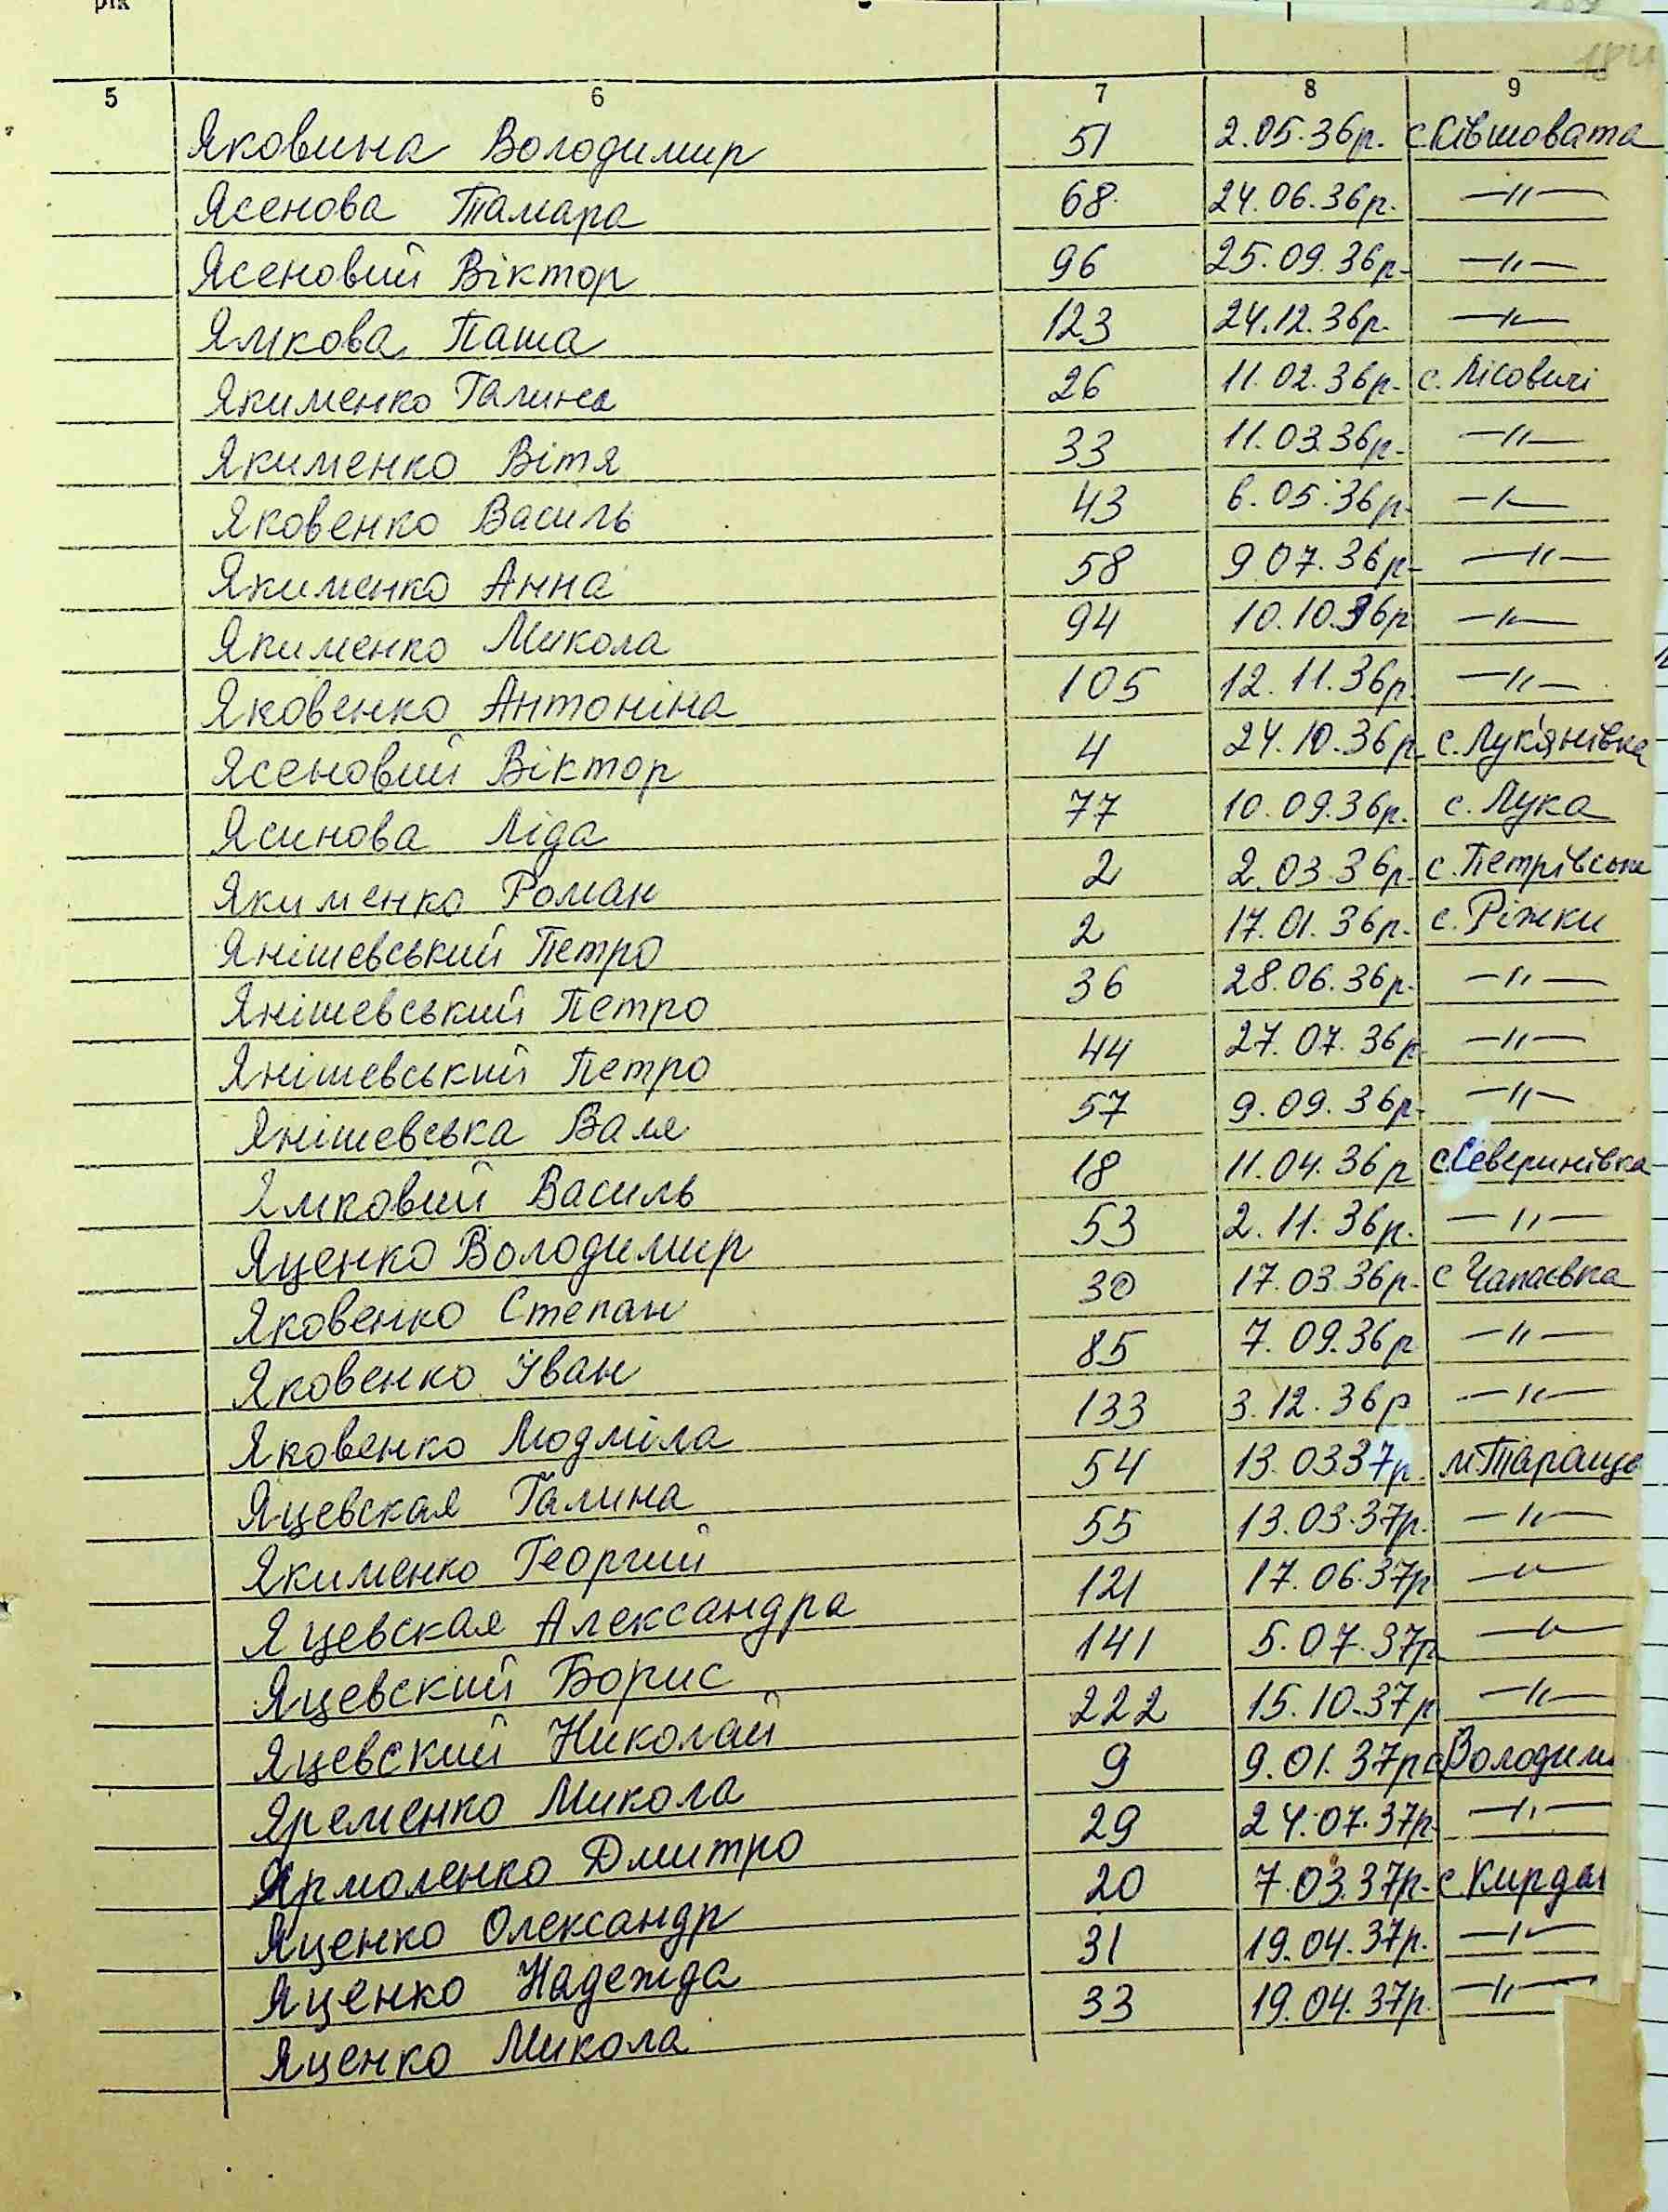 рік
184
5 6 7 8 9
Яковина Володимир 51 2.05.36р. с.Ківшовата
Ясенова Тамара 68 24.06.36р. —"—
Ясеновий Віктор 96 25.09.36р. —"—
Ямкова Паша 123 24.12.36р. —"—
Якименко Галина 26 11.02.36р. с. Лісовичі
Якименко Вітя 33 11.03.36р. —"—
Яковенко Василь 43 6.05.36р. —"—
Якименко Анна 58 9.07.36р. —"—
Якименко Микола 94 10.10.36р —"—
Яковенко Антоніна 105 12.11.36р. —"—
Ясеновий Віктор 4 24.10.36р. с.Лук'янівка
Ясинова Ліда 77 10.09.36р. с. Лука
Якименко Роман 2 2.03.36р. с.Петрівське
Янішевський Петро 2 17.01.36р. с. Ріжки
Янішевський Петро 36 28.06.36р. —"—
Янішевський Петро 44 27.07.36р —"—
Янішевська Валя 57 9.09.36р. —"—
Ямковий Василь 18 11.04.36р с.Северинівка
Яценко Володимир 53 2.11.36р. —"—
Яковенко Степан 30 17.03.36р. с Чапаєвка
Яковенко Іван 85 7.09.36р —"—
Яковенко Людміла 133 3.12.36р —"—
Яцевская Галина 54 13.03.37р. м.Тараща
Якименко Георгий 55 13.03.37р. —"—
Яцевская Александра 121 17.06.37р —"—
Яцевский Борис 141 5.07.37р —"—
Яцевский Николай 222 15.10.37р —"—
Яременко Микола 9 9.01.37р с Володим
Ярмоленко Дмитро 29 24.07.37р. —"—
Яценко Олександр 20 7.03.37р. с Кирда
Яценко Надежда 31 19.04.37р. —"—
Яценко Микола 33 19.04.37р. —"—